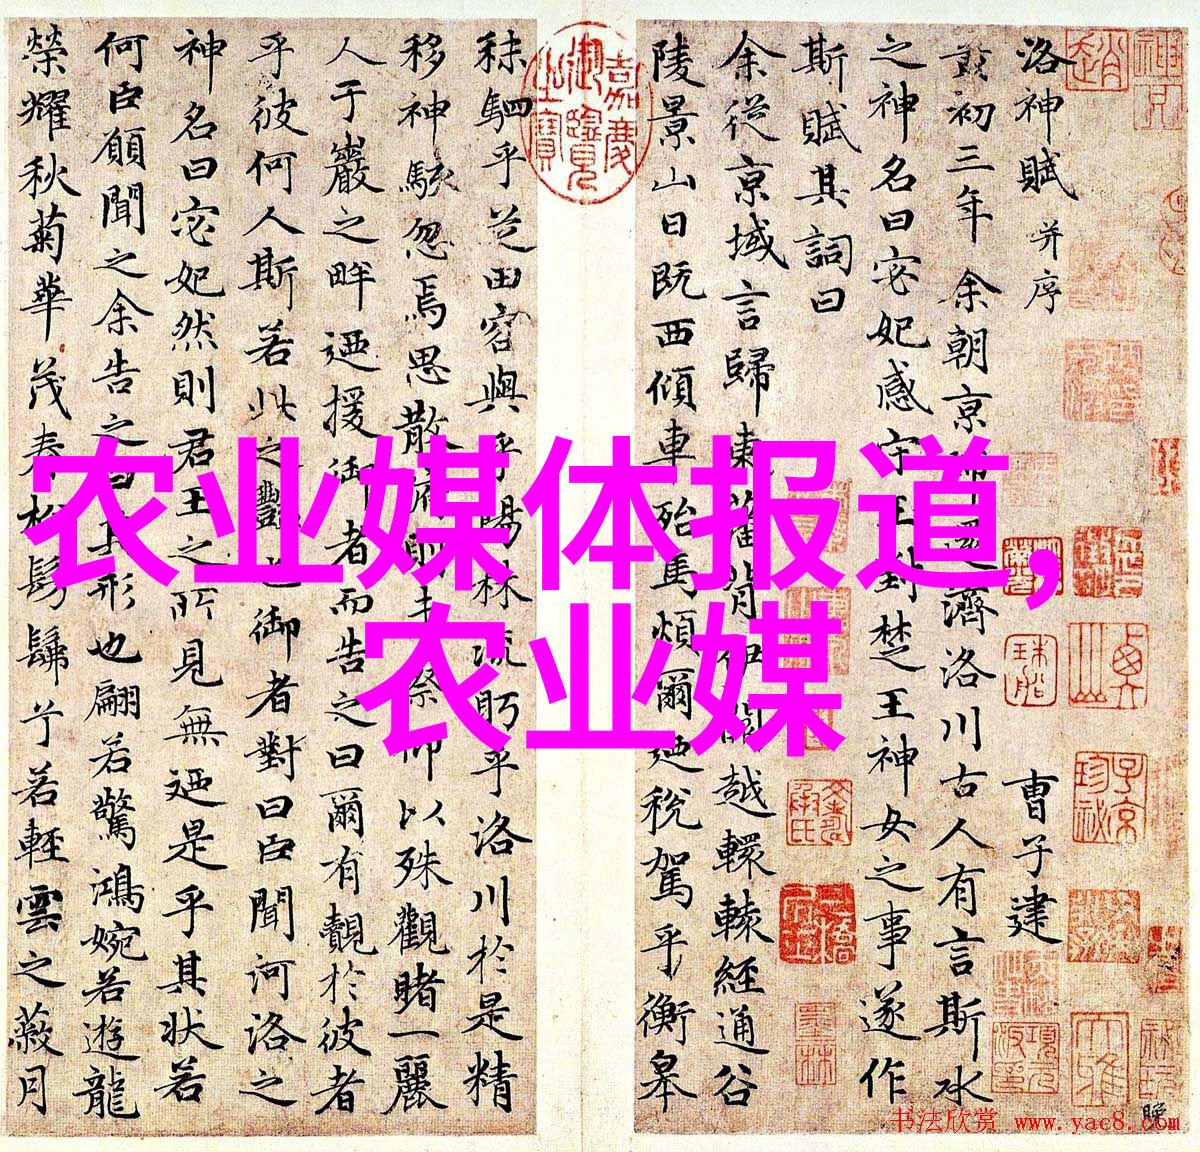 洛神賦 并序 曹子建
黃初三年余朝京師還濟洛川古人有言斯水
之神名曰宓妃感宋玉對楚王神女之事遂作
斯賦其詞曰
余從京域言歸東藩背伊闕越轘轅經通谷
陵景山日既西傾車殆馬煩爾廼稅駕乎衡皋
嘉慶御覽之寶
秣駟乎芝田容與乎陽林流眄乎洛川於是精
移神駭忽焉思散俯則未察仰以殊觀睹一麗
人于巖之畔廼援御者而告之曰爾有覿於彼者
乎彼何人斯若此之豔也御者對曰臣聞河洛之
神名曰宓妃然則君王之所見無廼是乎其状若
何臣願聞之余告之曰其形也翩若驚鴻婉若遊龍
榮耀秋菊華茂春松髣髴兮若輕雲之蔽月
农业媒体报道,
农业媒
书法欣赏 www.yac8.com